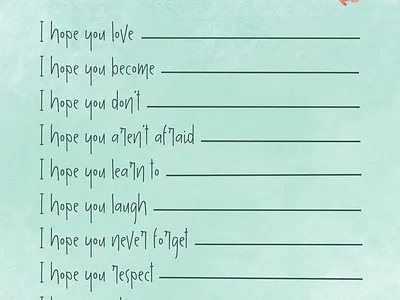 I hope you love
I hope you become
I hope you don't
I hope you aren't afraid
I hope you learn to
I hope you laugh
I hope you never forget
I hope you respect